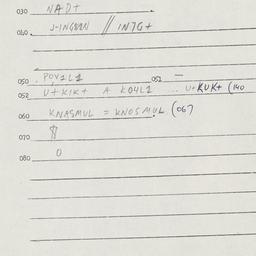 030 NAD+
040. J-INGNAN // INTG+
050 . POVILI 052 —
052 U+KIK+ A KO4L1 ... U+KUK+ (140
060 KNASMUL = KNOSMUL (067
070
080 O